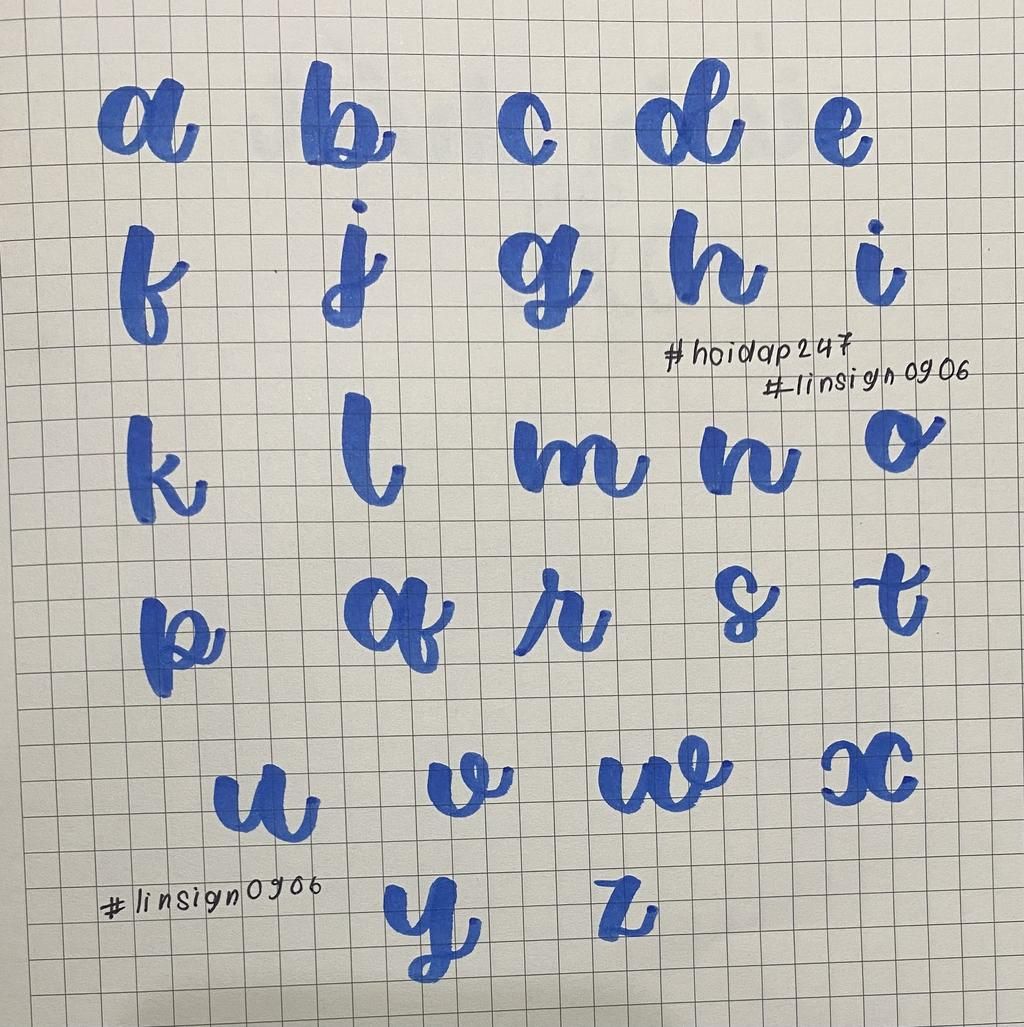 a b c d e
f j g h i
#hoidap247
#linsign0906
k l m n o
p q r s t
u v w x
#linsign0906
y z